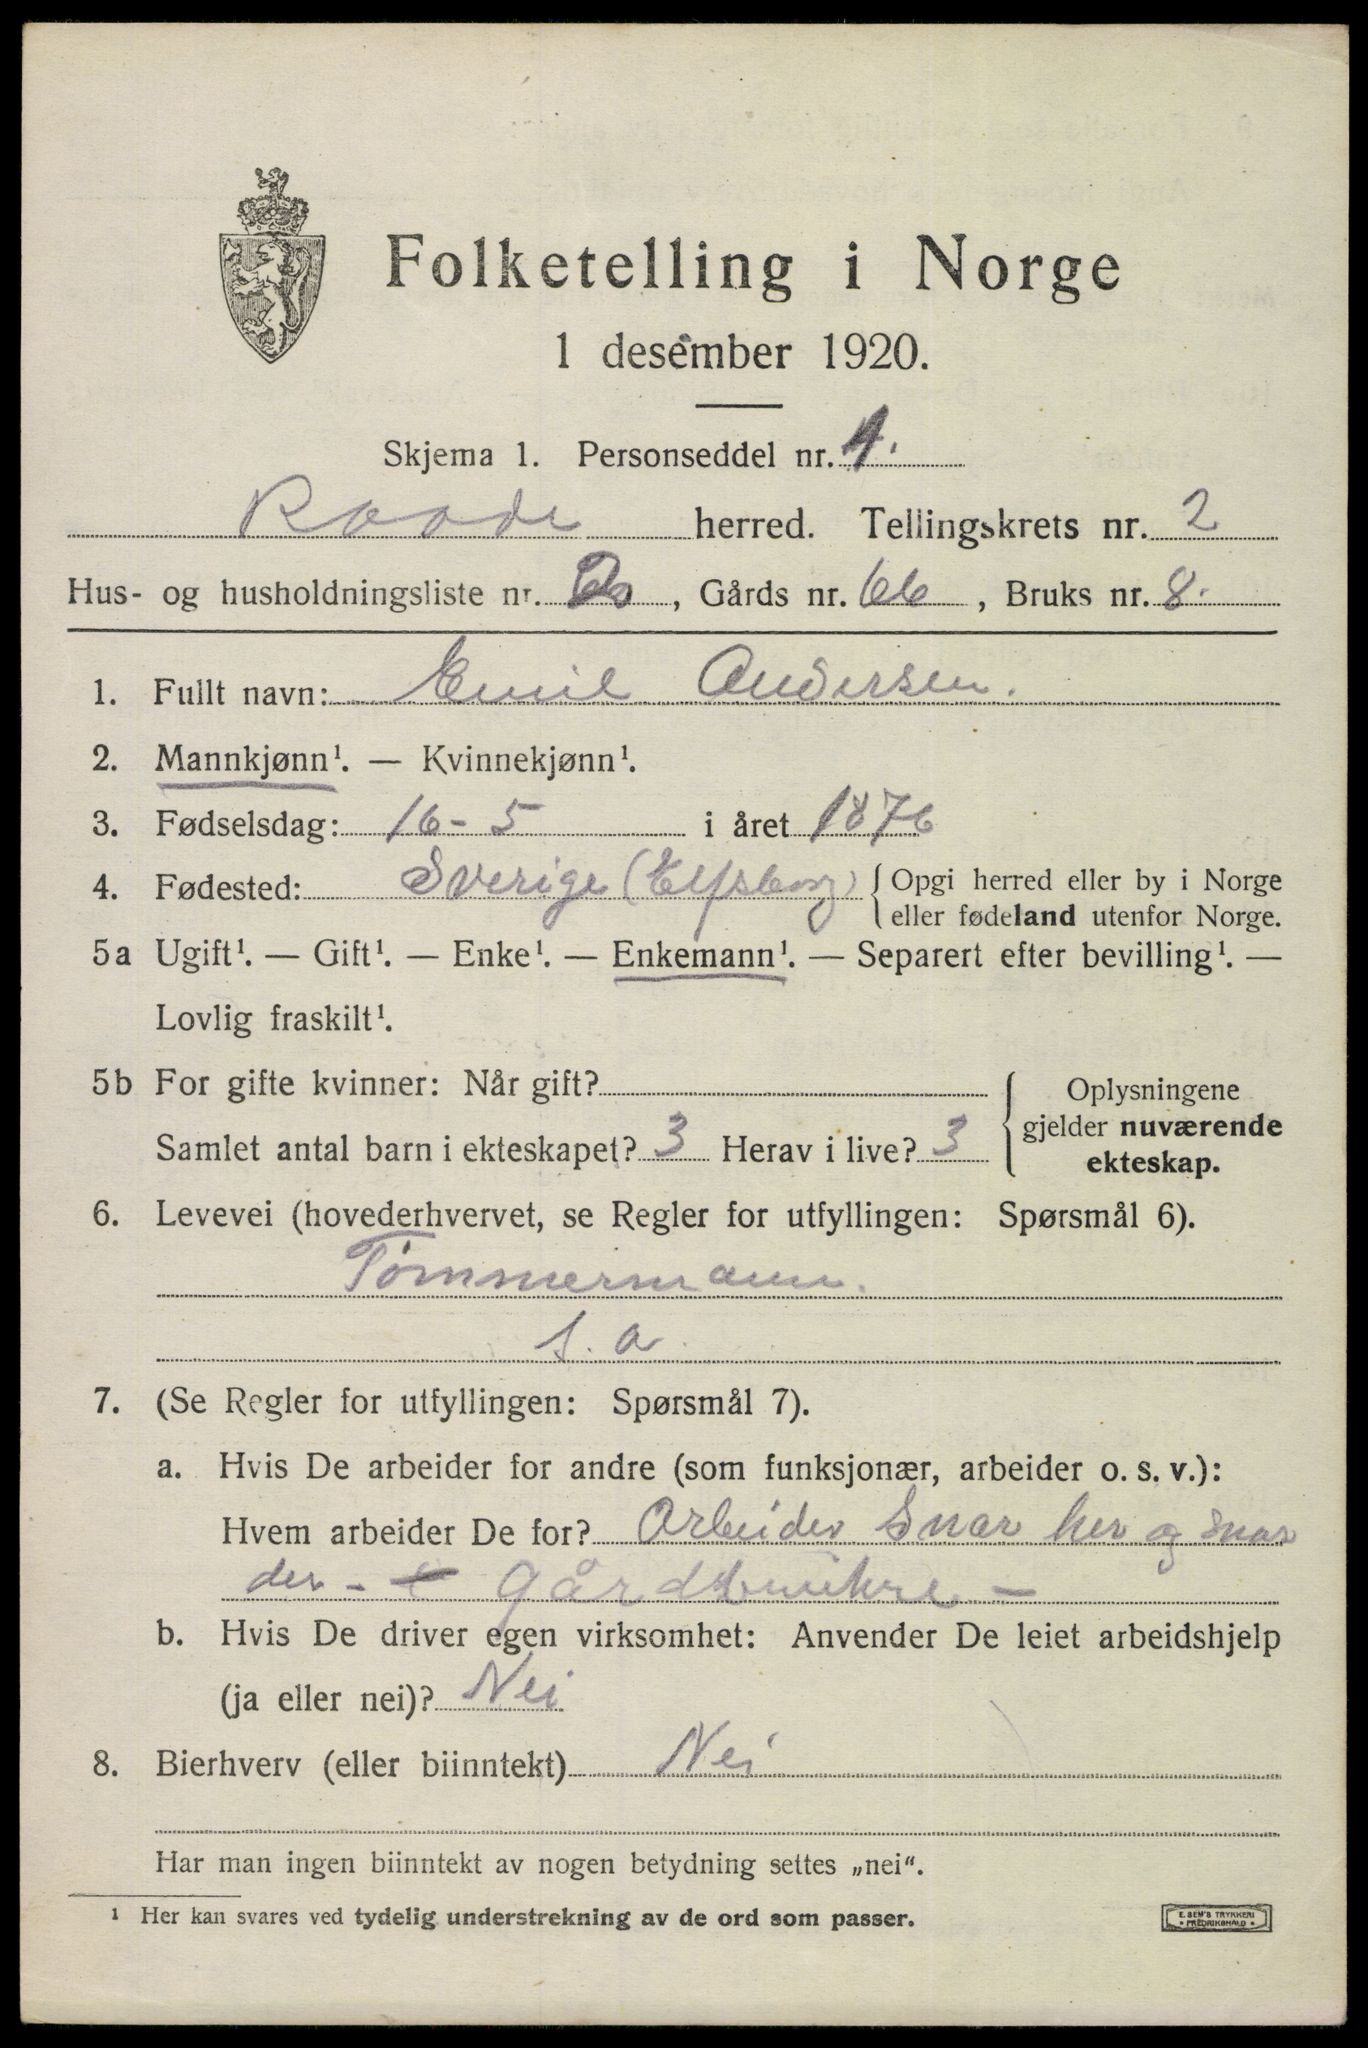 Folketelling i Norge
1 desember 1920.
Skjema 1. Personseddel nr. 1.
Raade herred. Tellingskrets nr. 2
Hus- og husholdningsliste nr. , Gårds nr. 66 , Bruks nr. 8.
1. Fullt navn: Emil Andersen.
2. Mannkjønn¹. — Kvinnekjønn¹.
3. Fødselsdag: 16-5 i året 1876
4. Fødested: Sverige (Elfsborg) { Opgi herred eller by i Norge
eller fødeland utenfor Norge.
5a Ugift¹. — Gift¹. — Enke¹. — Enkemann¹. — Separert efter bevilling¹. —
Lovlig fraskilt¹.
5b For gifte kvinner: Når gift? { Oplysningene
gjelder nuværende
Samlet antal barn i ekteskapet? 3 Herav i live? 3
ekteskap.
6. Levevei (hovederhvervet, se Regler for utfyllingen: Spørsmål 6).
Tømmermann.
s. a
7. (Se Regler for utfyllingen: Spørsmål 7).
a. Hvis De arbeider for andre (som funksjonær, arbeider o. s. v.):
Hvem arbeider De for? Arbeider snar her og snar
der -
b. Hvis De driver egen virksomhet: Anvender De leiet arbeidshjelp
(ja eller nei)? Nei
8. Bierhverv (eller biinntekt) Nei
Har man ingen biinntekt av nogen betydning settes „nei“.
¹ Her kan svares ved tydelig understrekning av de ord som passer.
E. SEM'S TRYKKERI
* FREDRIKSHALD *